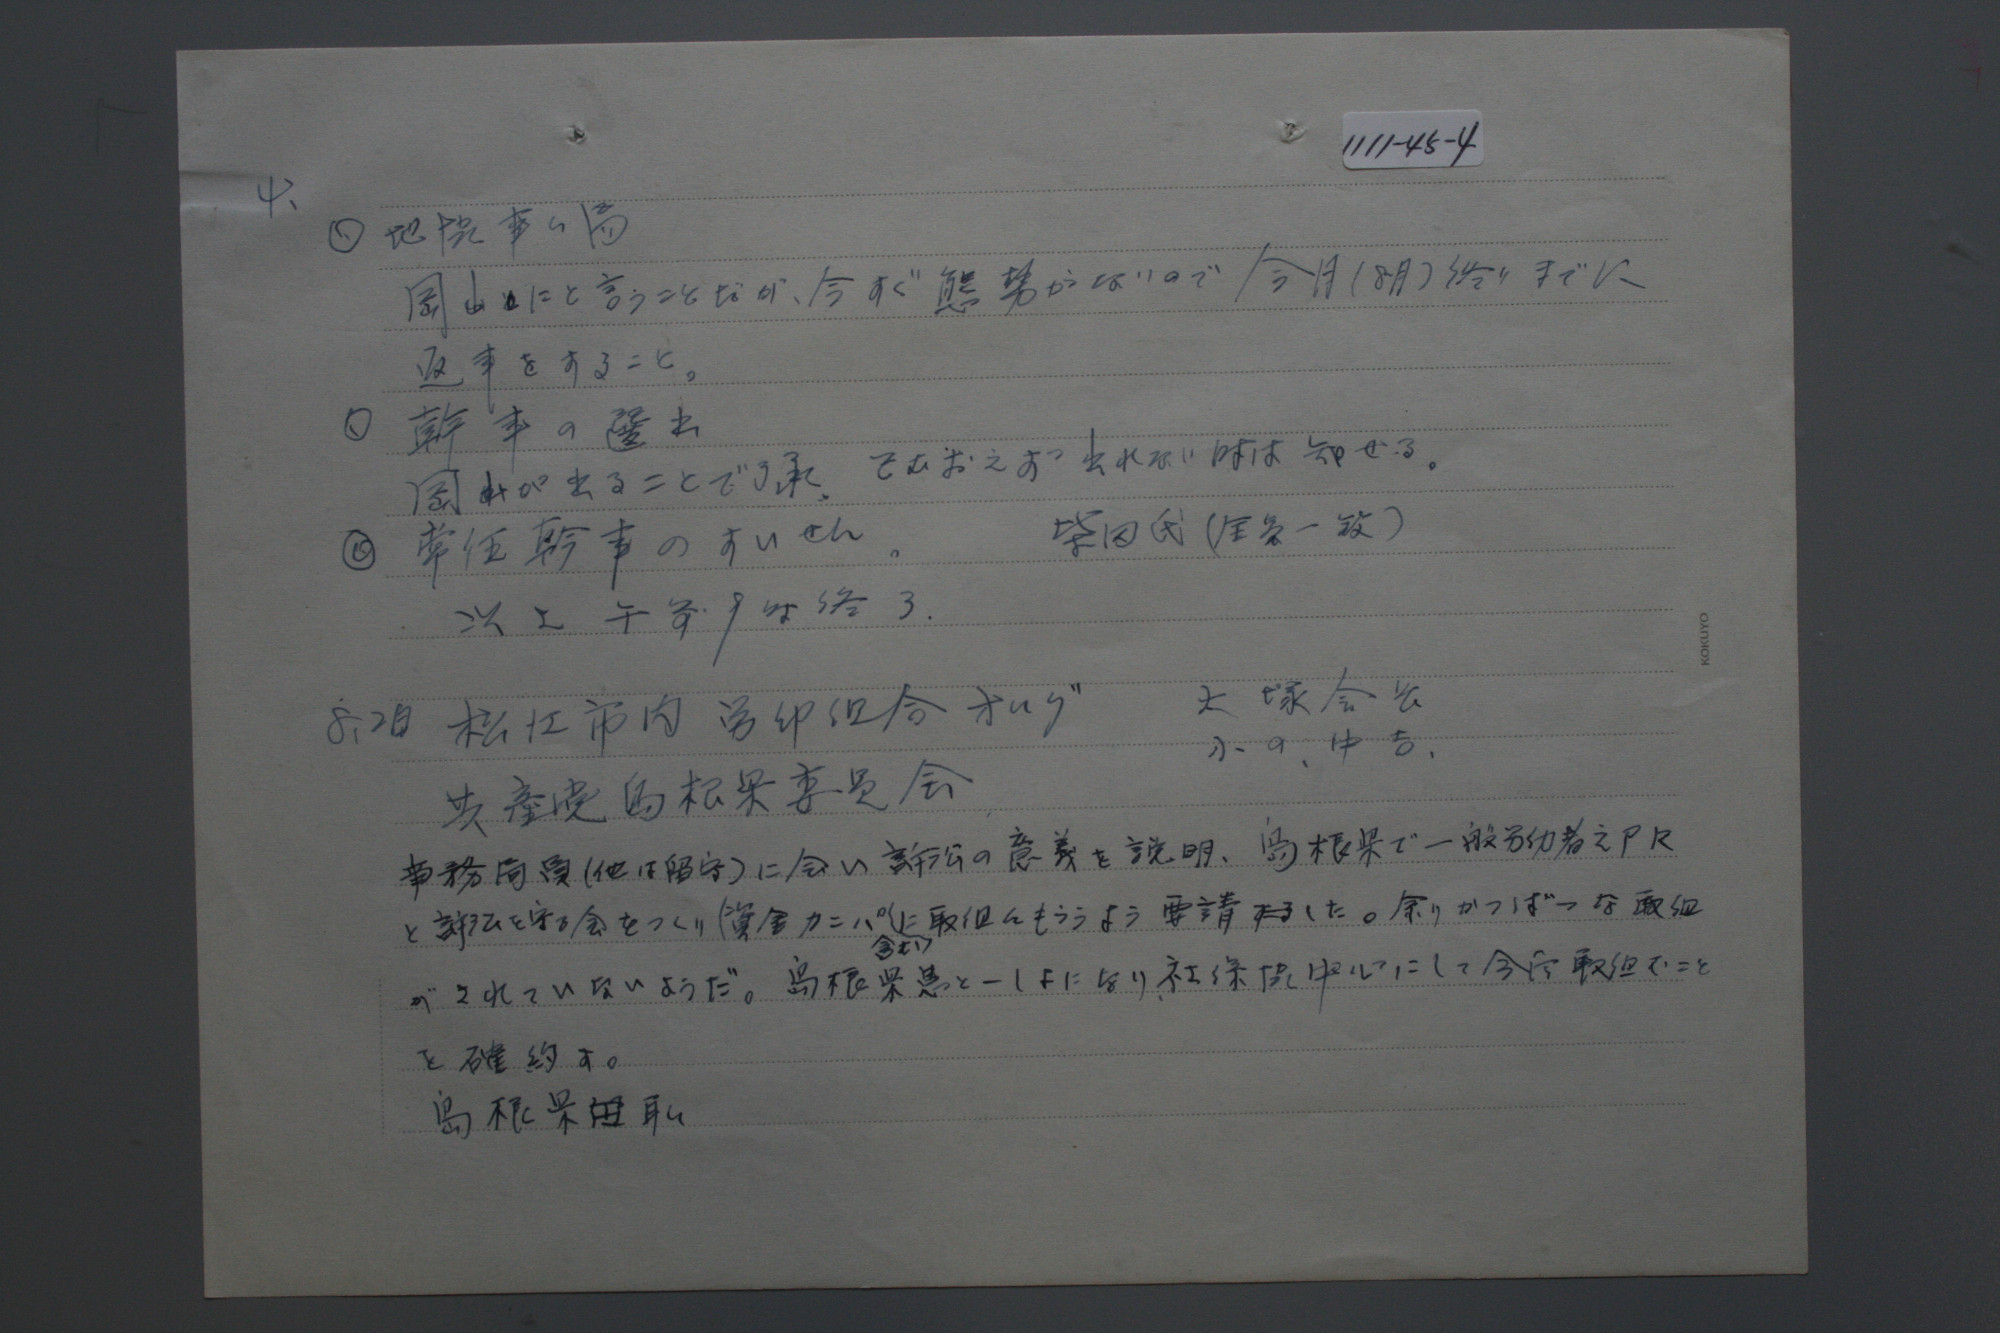 1111-45-4
4、
地院事ム局
岡山にと言うことだが、今すぐ態勢がないので今月(8月)終りまでに
返事をすること。
幹事の選出
岡山が出ることで了承。そむおえず出れない時は知せる。
常任幹事のすいせん。 柴田氏(全員一致)
以上 午前9時終了.
KOKUYO
8.2日 松江市内労仂組合オルグ 大塚会長
水の、中吉.
共産党島根県委員会
事務局員(他は留守)に会い訴訟の意義を説明、島根県で一般労仂者えPR
と訴訟を守る会をつくり(資金カンパ含む)に取組んもらうよう要請した。余りかつぱつな取組
がされていないようだ。島根県患と一しょになり社保協中心にして今后取組むこと
を確約す。
島根県